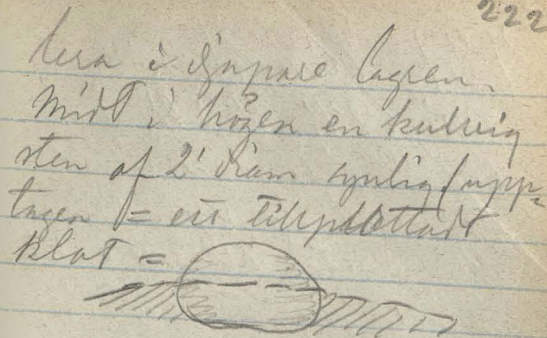 222
lera i djupare lagren.
Midt i högen en kullrig
sten af 2' diam synlig (upp-
tagen = ett tillplattadt
klot =